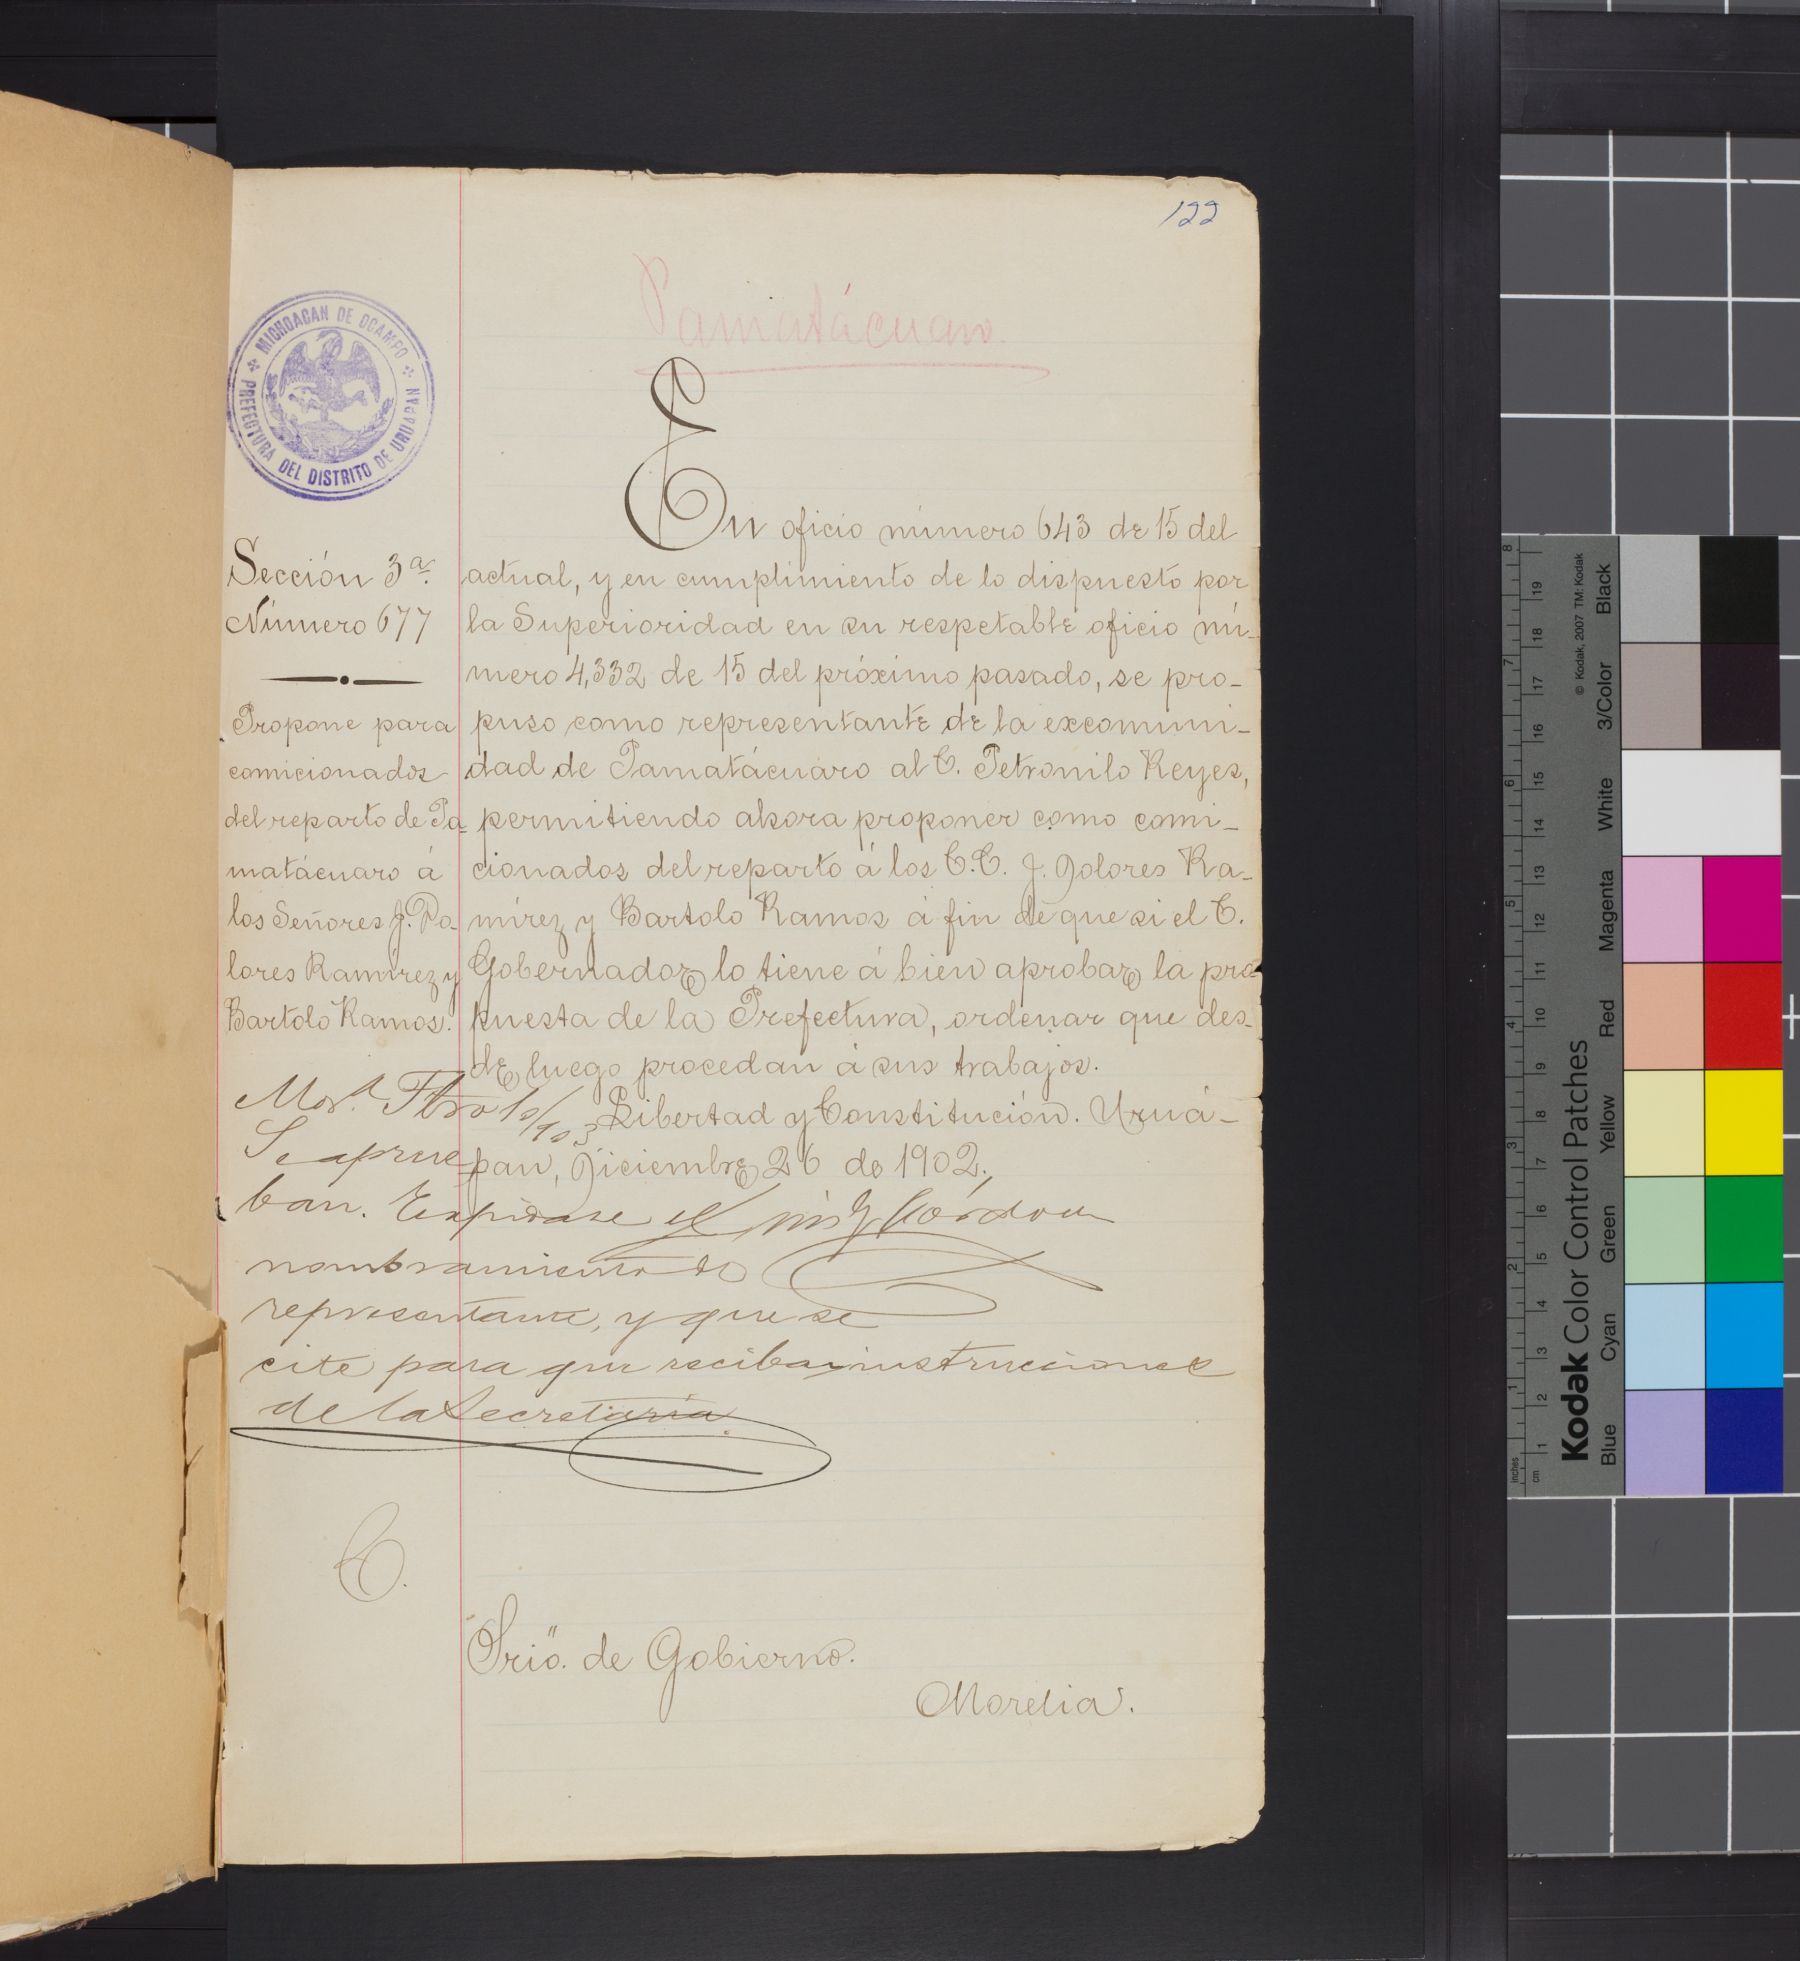 122
Pamatácuaro.
MICHOACAN DE OCAMPO
PREFECTURA DEL DISTRITO DE URUAPAN
Sección 3ª.
Número 677
Propone para
comicionados
del reparto de Pa-
matácuaro á
los Señores J. Do-
lores Ramírez y
Bartolo Ramos.
En oficio número 643 de 15 del
actual, y en cumplimiento de lo dispuesto por
la Superioridad en su respetable oficio nú-
mero 4,332 de 15 del próximo pasado, se pro-
puso como representante de la excomuni-
dad de Pamatácuaro al C. Petronilo Reyes,
permitiendo ahora proponer como comi-
cionados del reparto á los C.C. J. Dolores Ra-
mírez y Bartolo Ramos á fin de que si el C.
Gobernador lo tiene á bien aprobar la pro-
puesta de la Prefectura, ordenar que des-
de luego procedan á sus trabajos.
Libertad y Constitución. Uruá-
pan, Diciembre 26 de 1902.
Mor.ª Fbro 10/903
Se aprue-
ban. Expídase el
nombramiento de
representante, y que se
cite para que reciban instrucciones
de la Secretaría
C.
Srio. de Gobierno.
Morelia.
Kodak Color Control Patches
© Kodak, 2007 TM: Kodak
Blue Cyan Green Yellow Red Magenta White 3/Color Black
inches 1 2 3 4 5 6 7 8
cm 1 2 3 4 5 6 7 8 9 10 11 12 13 14 15 16 17 18 19